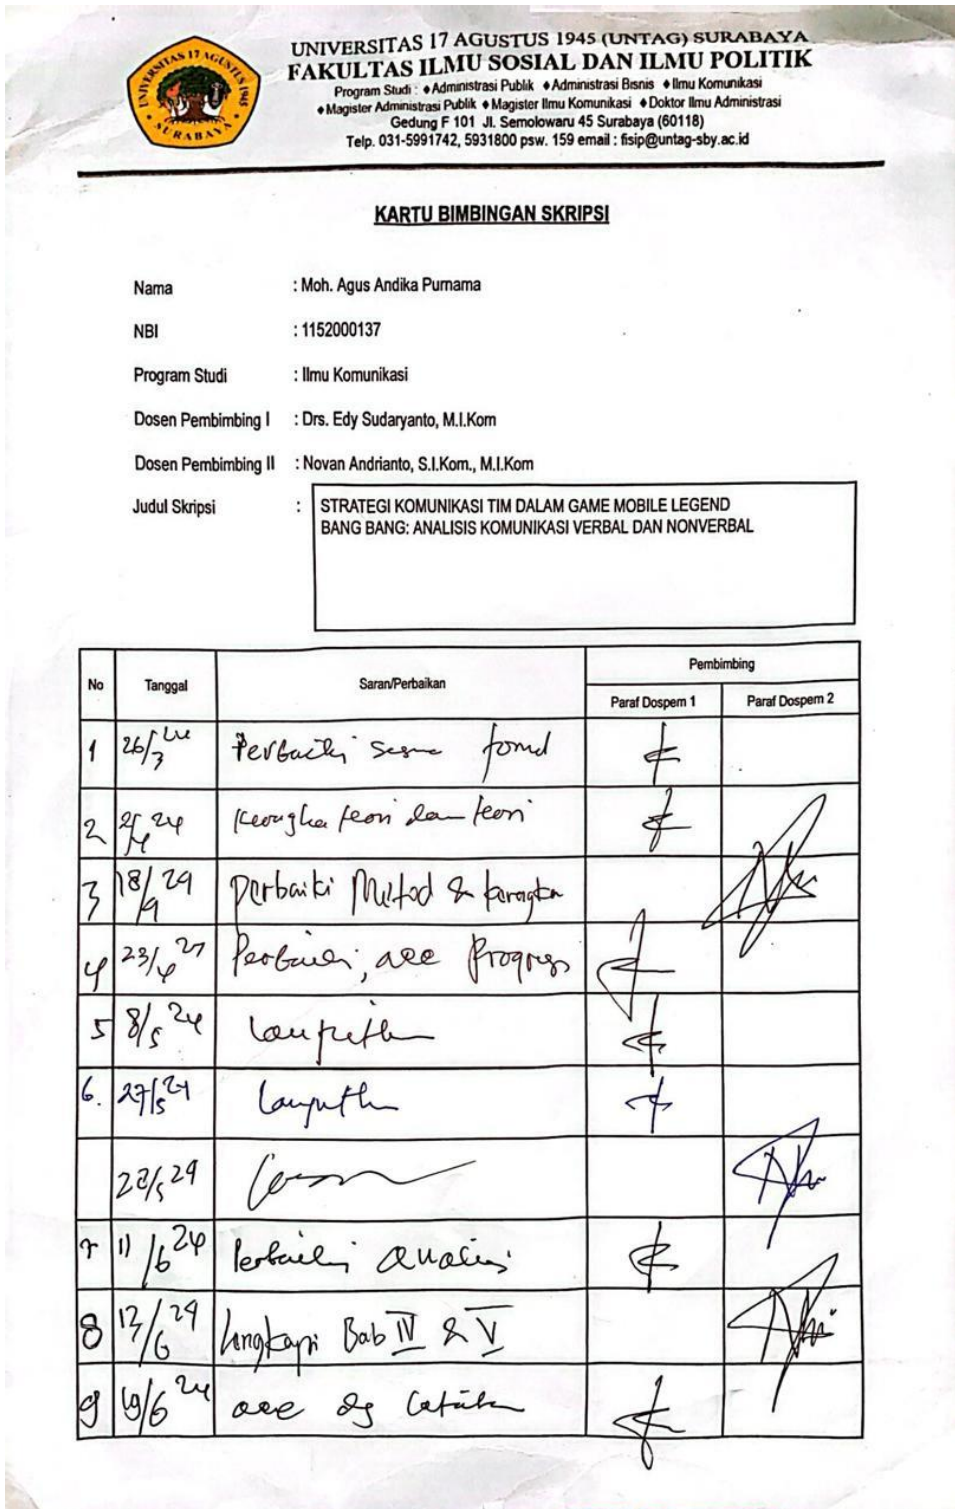 UNIVERSITAS 17 AGUSTUS 1945 (UNTAG) SURABAYA
FAKULTAS ILMU SOSIAL DAN ILMU POLITIK
Program Studi : ♦Administrasi Publik ♦Administrasi Bisnis ♦Ilmu Komunikasi
♦Magister Administrasi Publik ♦Magister Ilmu Komunikasi ♦Doktor Ilmu Administrasi
Gedung F 101 Jl. Semolowaru 45 Surabaya (60118)
Telp. 031-5991742, 5931800 psw. 159 email : fisip@untag-sby.ac.id
UNIVERSITAS 17 AGUSTUS 1945
SURABAYA
KARTU BIMBINGAN SKRIPSI
Nama : Moh. Agus Andika Purnama
NBI : 1152000137
Program Studi : Ilmu Komunikasi
Dosen Pembimbing I : Drs. Edy Sudaryanto, M.I.Kom
Dosen Pembimbing II : Novan Andrianto, S.I.Kom., M.I.Kom
Judul Skripsi : STRATEGI KOMUNIKASI TIM DALAM GAME MOBILE LEGEND
BANG BANG: ANALISIS KOMUNIKASI VERBAL DAN NONVERBAL
No Tanggal Saran/Perbaikan Pembimbing
Paraf Dospem 1 Paraf Dospem 2
1 26/3 24 Perbaiki
2 24 Kerangka teori dan teori
3 18/4 24 Perbaiki Metod & kerangka
4 23/4 24 Perbaiki, acc Progres
5 8/5 24 Lanjutkan
6. 27/5 24 Lanjutkan
/5 24
7 11/6 24 Perbaiki analisis
8 13/6 24 Lengkapi Bab IV & V
9 19/6 24 acc dg Catatan